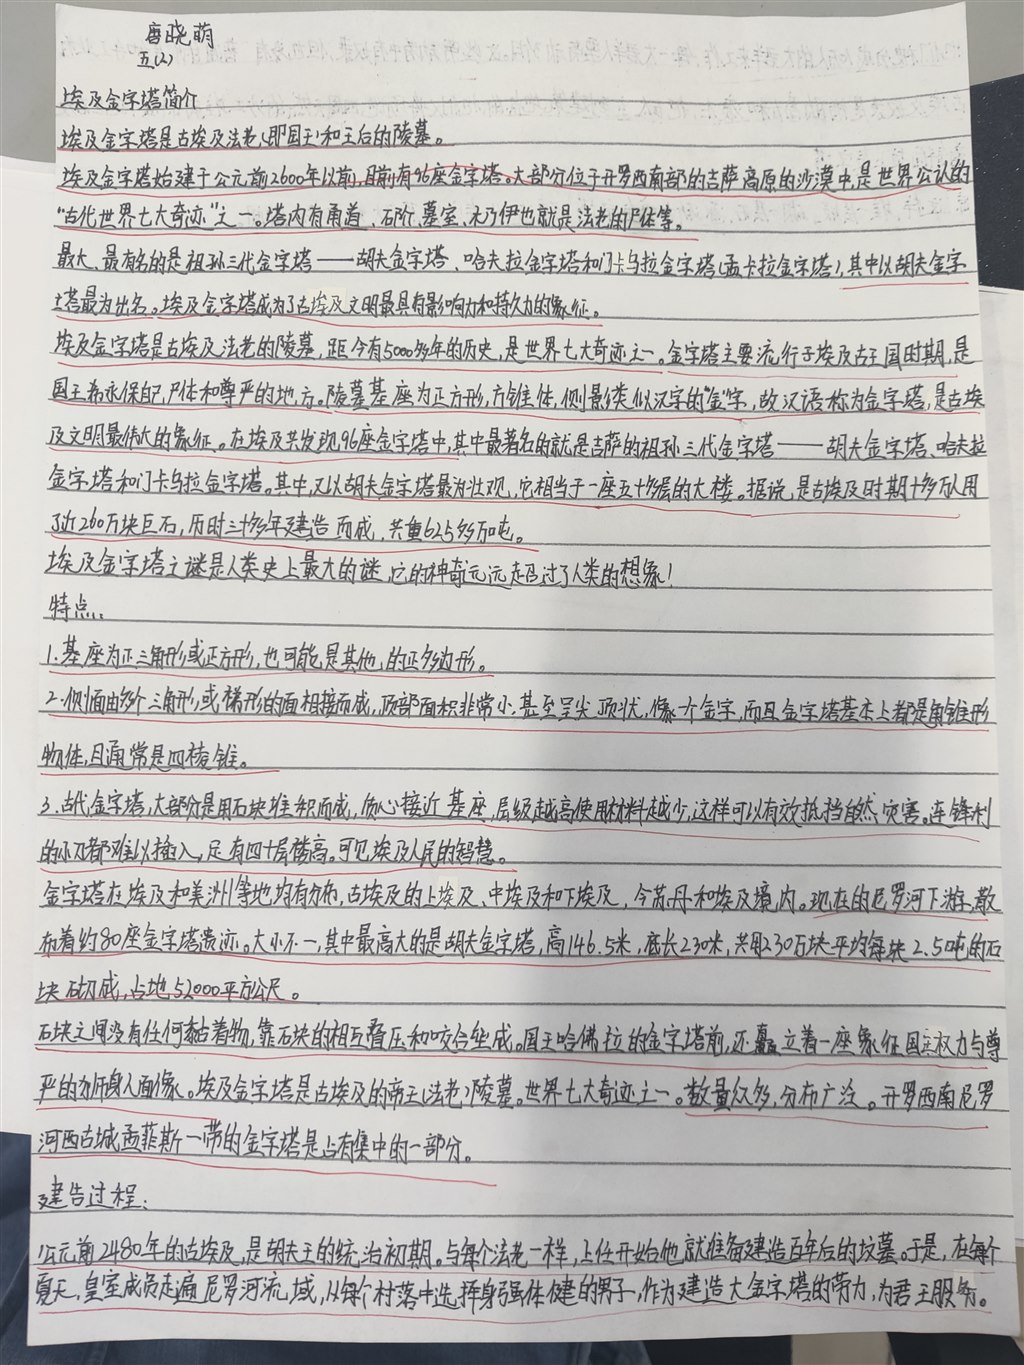 唐晓萌
五(2)
埃及金字塔简介
埃及金字塔是古埃及法老(即国王)和王后的陵墓。
埃及金字塔始建于公元前2600年以前,目前有96座金字塔。大部分位于开罗西南部的吉萨高原的沙漠中,是世界公认的
“古代世界七大奇迹”之一。塔内有甬道、石阶、墓室、木乃伊也就是法老的尸体等。
最大、最有名的是祖孙三代金字塔——胡夫金字塔、哈夫拉金字塔和门卡乌拉金字塔(孟卡拉金字塔),其中以胡夫金字
塔最为出名。埃及金字塔成为了古埃及文明最具有影响力和持久力的象征。
埃及金字塔是古埃及法老的陵墓,距今有5000多年的历史,是世界七大奇迹之一。金字塔主要流行于埃及古王国时期,是
国王希永保自己尸体和尊严的地方。陵墓基座为正方形,方锥体,侧影类似汉字的“金”字,故汉语称为金字塔,是古埃
及文明最伟大的象征。在埃及共发现96座金字塔中,其中最著名的就是吉萨的祖孙三代金字塔——胡夫金字塔、哈夫拉
金字塔和门卡乌拉金字塔。其中,又以胡夫金字塔最为壮观,它相当于一座五十多层的大楼。据说,是古埃及时期十多万人用
了近260万块巨石,历时三十多年建造而成,共重625多万吨。
埃及金字塔之谜是人类史上最大的谜,它的神奇远远超过了人类的想象!
特点:
1.基座为正三角形或正方形,也可能是其他的正多边形。
2.侧面由多个三角形或梯形的面相接而成,顶部面积非常小,甚至呈尖顶状,像一个金字,而且金字塔基本上都是角锥形
物体,且通常是四棱锥。
3.古代金字塔,大部分是用石块堆积而成,质心接近基座,层级越高使用材料越少,这样可以有效抵挡自然灾害。连锋利
的小刀都难以插入,足有四十层楼高。可见埃及人民的智慧。
金字塔在埃及和美洲等地均有分布,古埃及的上埃及、中埃及和下埃及,今苏丹和埃及境内。现在的尼罗河下游,散
布着约80座金字塔遗迹。大小不一,其中最高大的是胡夫金字塔,高146.5米,底长230米,共用230万块平均每块2.5吨的石
块砌成,占地52000平方公尺。
石块之间没有任何黏着物,靠石块的相互叠压和咬合垒成。国王哈佛拉的金字塔前,还矗立着一座象征国王权力与尊
严的狮身人面像。埃及金字塔是古埃及的帝王(法老)陵墓。世界七大奇迹之一。数量众多,分布广泛。开罗西南尼罗
河西古城孟菲斯一带的金字塔是占有集中的一部分。
建告过程:
公元前2480年的古埃及,是胡夫王的统治初期。与每个法老一样,上任开始他就准备建造百年后的坟墓。于是,在每个
夏天,皇室成员走遍尼罗河流域,从每个村落中选择身强体健的男子,作为建造大金字塔的劳力,为君王服务。